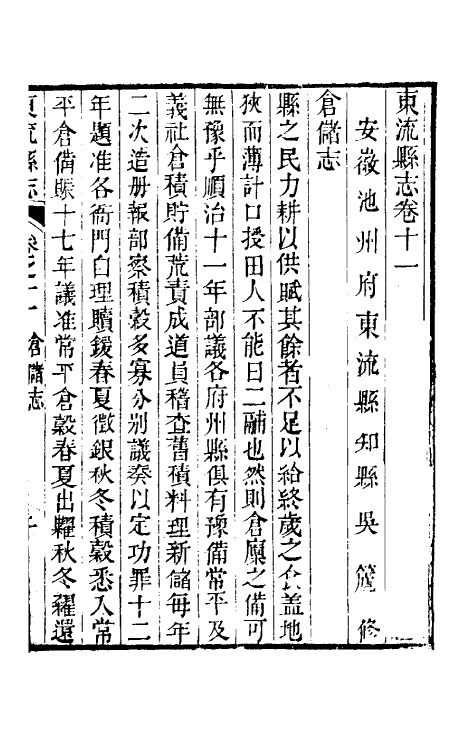 東流縣志卷十一
安徽池州府東流縣知縣吳箎修
倉儲志
縣之民力耕以供賦其餘者不足以給終歲之食蓋地
狹而薄計口授田人不能日二鬴也然則倉廩之備可
無豫乎順治十一年部議各府州縣俱有豫備常平及
義社倉積貯備荒責成道員稽查舊積料理新儲每年
二次造册報部察積穀多寡分别議奏以定功罪十二
年題准各衙門自理贖鍰春夏徵銀秋冬積穀悉入常
平倉備賑十七年議准常平倉穀春夏出糶秋冬糴還
東流縣志 卷之十一 倉儲志